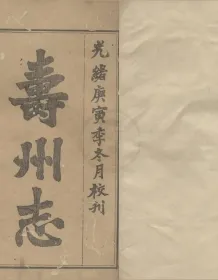 光緒庚寅季冬月校刋
壽州志